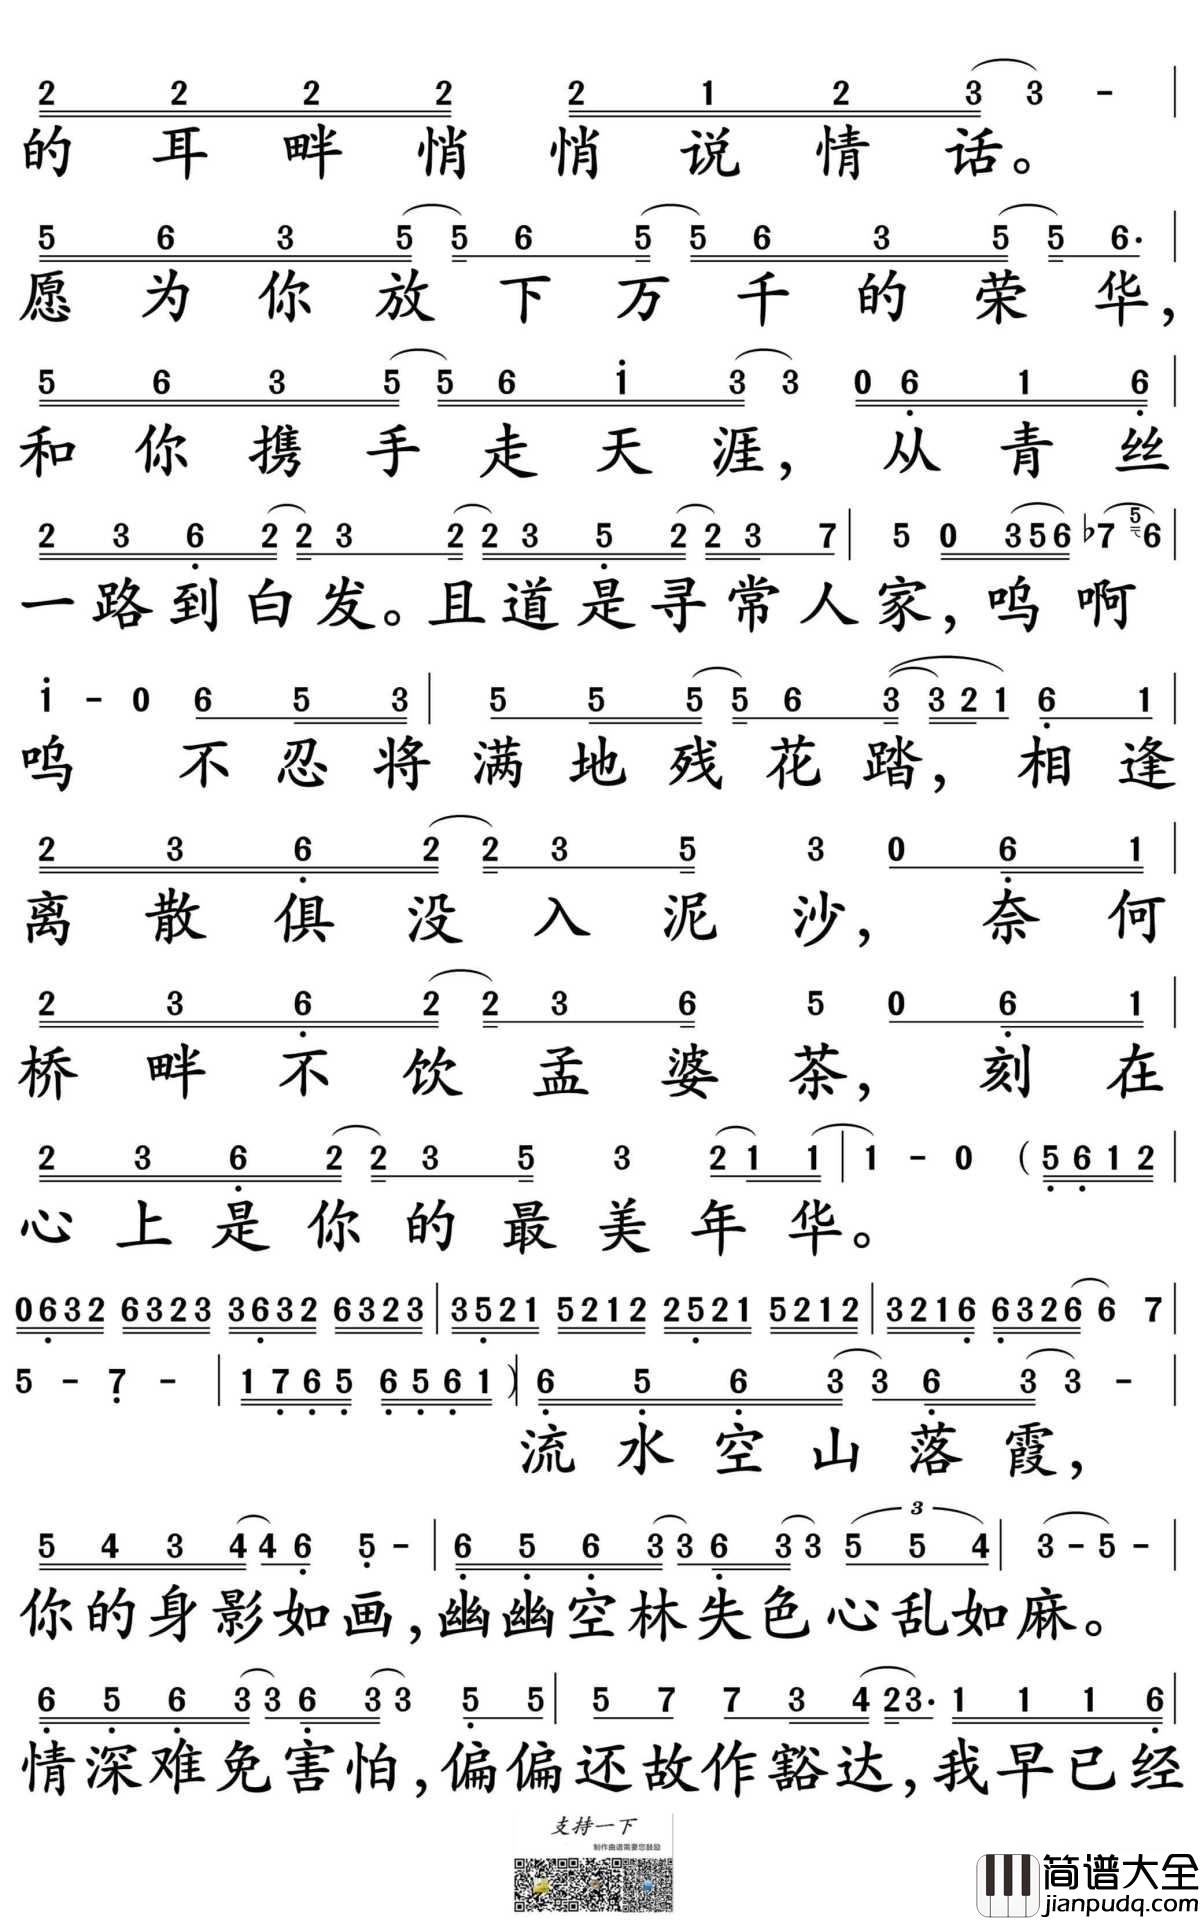 2 2 2 2 2 1 2 3 3 -
的耳畔悄悄说情话。
5 6 3 5 5 6 5 5 6 3 5 5 6·
愿为你放下万千的荣华，
5 6 3 5 5 6 1 3 3 0 6 1 6
和你携手走天涯，从青丝
2 3 6 2 2 3 2 2 3 5 2 2 3 7 5 0 3 5 6 ♭7 5 6
一路到白发。且道是寻常人家，呜啊
1 - 0 6 5 3 5 5 5 5 6 3 3 2 1 6 1
呜不忍将满地残花踏，相逢
2 3 6 2 2 3 5 3 0 6 1
离散俱没入泥沙，奈何
2 3 6 2 2 3 6 5 0 6 1
桥畔不饮孟婆茶，刻在
2 3 6 2 2 3 5 3 2 1 1 1 - 0 (5 6 1 2
心上是你的最美年华。
0632 6323 3632 6323 3521 5212 2521 5212 3216 6326 6 7
5 - 7 - 1765 6561) 6 5 6 3 3 6 3 3 -
流水空山落霞，
5 4 3 4 4 6 5 - 6 5 6 3 3 6 3 3 3 5 5 4 3 - 5 -
你的身影如画，幽幽空林失色心乱如麻。
6 5 6 3 3 6 3 3 5 5 5 7 7 3 4 2 3· 1 1 1 6
情深难免害怕，偏偏还故作豁达，我早已经
支持一下
制作曲谱需要您鼓励
简谱大全
jianpudq.com